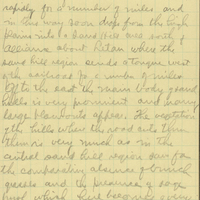 rapidly for a number of miles and
in this way soon drops from the high
plains into a sand hill area south
of Halan where the
sand hill region sends a tongue west
of the railroad for a number of miles.
To the east the main body of sand
hills is very prominent and many
large blowouts appear. The vegetation
of the hills where the road cuts thru
them is very much as in the
central sand hill region save for
the comparative absence of bunch
grasses and the presence of sage
brush which here becomes every